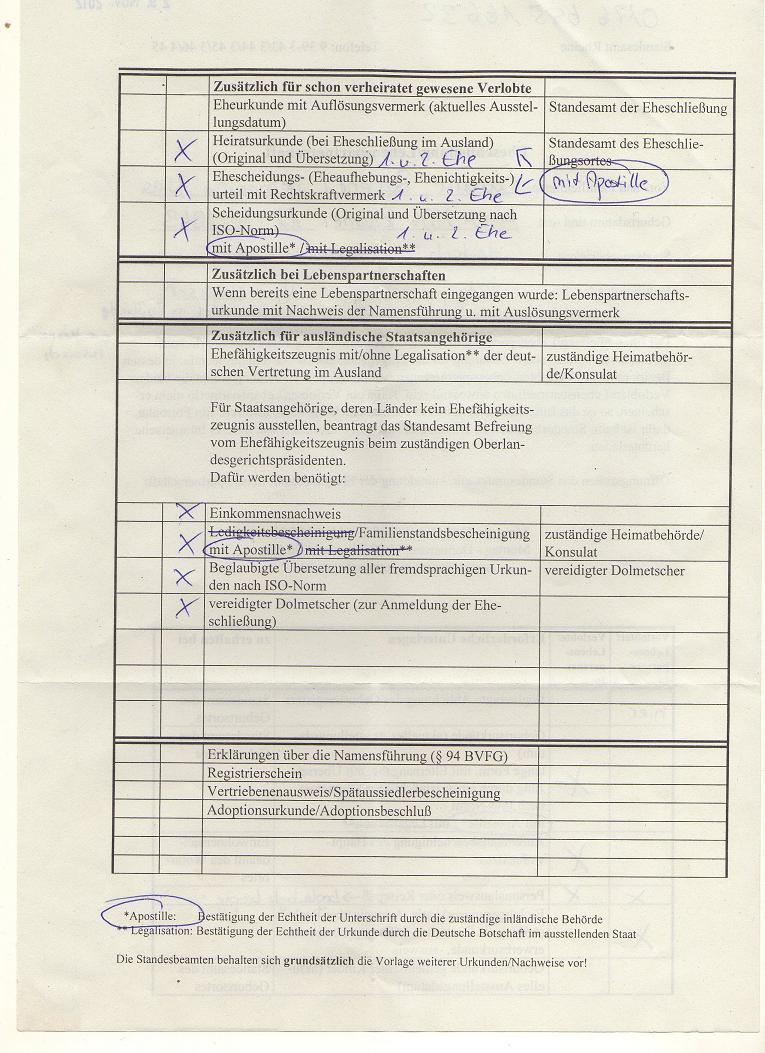 Zusätzlich für schon verheiratet gewesene Verlobte
Eheurkunde mit Auflösungsvermerk (aktuelles Ausstel-
lungsdatum)
Standesamt der Eheschließung
Heiratsurkunde (bei Eheschließung im Ausland)
(Original und Übersetzung) 1. u. 2. Ehe
Standesamt des Eheschlie-
ßungsortes
Ehescheidungs- (Eheaufhebungs-, Ehenichtigkeits-)
urteil mit Rechtskraftvermerk 1. u. 2. Ehe
mit Apostille
Scheidungsurkunde (Original und Übersetzung nach
ISO-Norm) 1. u. 2. Ehe
mit Apostille* / mit Legalisation**
Zusätzlich bei Lebenspartnerschaften
Wenn bereits eine Lebenspartnerschaft eingegangen wurde: Lebenspartnerschafts-
urkunde mit Nachweis der Namensführung u. mit Auslösungsvermerk
Zusätzlich für ausländische Staatsangehörige
Ehefähigkeitszeugnis mit/ohne Legalisation** der deut-
schen Vertretung im Ausland
zuständige Heimatbehör-
de/Konsulat
Für Staatsangehörige, deren Länder kein Ehefähigkeits-
zeugnis ausstellen, beantragt das Standesamt Befreiung
vom Ehefähigkeitszeugnis beim zuständigen Oberlan-
desgerichtspräsidenten.
Dafür werden benötigt:
X Einkommensnachweis
X Ledigkeitsbescheinigung/Familienstandsbescheinigung
mit Apostille* / mit Legalisation**
zuständige Heimatbehörde/
Konsulat
X Beglaubigte Übersetzung aller fremdsprachigen Urkun-
den nach ISO-Norm
vereidigter Dolmetscher
X vereidigter Dolmetscher (zur Anmeldung der Ehe-
schließung)
Erklärungen über die Namensführung (§ 94 BVFG)
Registrierschein
Vertriebenenausweis/Spätaussiedlerbescheinigung
Adoptionsurkunde/Adoptionsbeschluß
*Apostille: Bestätigung der Echtheit der Unterschrift durch die zuständige inländische Behörde
** Legalisation: Bestätigung der Echtheit der Urkunde durch die Deutsche Botschaft im ausstellenden Staat
Die Standesbeamten behalten sich grundsätzlich die Vorlage weiterer Urkunden/Nachweise vor!